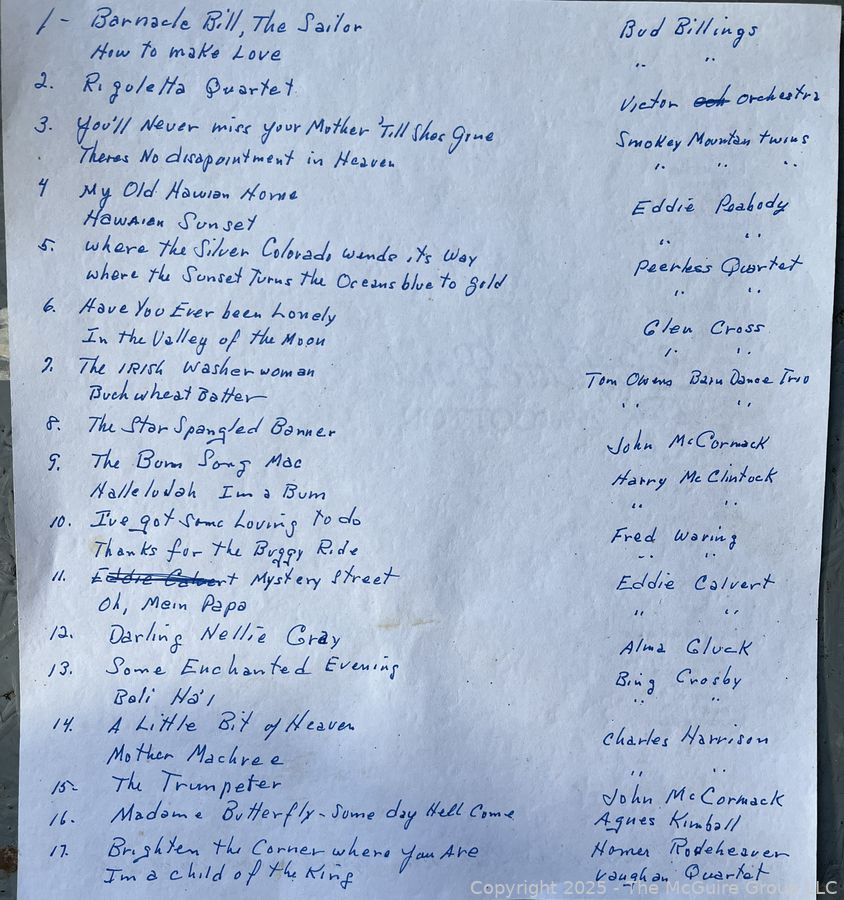 1- Barnacle Bill, The Sailor Bud Billings
How to make Love " "
2. Riguletta Quartet Victor och orchestra
3. You'll Never miss your Mother 'Till Shes Gone Smokey Mountan twins
Theres No disapointment in Heaven " " "
4 My Old Hawian Home Eddie Peabody
Hawaian Sunset " "
5. where the Silver Colorado wends its Way Peerless Quartet
where the Sunset Turns the Oceans blue to gold " "
6. Have You Ever been Lonely Glen Cross
In the Valley of the Moon " "
7. The IRISH Washerwoman Tom Owens Barn Dance Trio
Buckwheat Batter " "
8. The Star Spangled Banner John McCormack
9. The Bum Song Mac Harry McClintock
Halleludah Im a Bum " "
10. I've got some Loving to do Fred Waring
Thanks for the Buggy Ride " "
11. Eddie Calvert Mystery Street Eddie Calvert
Oh, Mein Papa " "
12. Darling Nellie Gray Alma Gluck
13. Some Enchanted Evening Bing Crosby
Bali Ha'i " "
14. A Little Bit of Heaven Charles Harrison
Mother Machree " "
15- The Trumpeter John McCormack
16. Madame Butterfly-Some day Hell Come Agnes Kimball
17. Brighten the Corner where You Are Homer Rodeheaver
Im a child of the King Vaughan Quartet
Copyright 2025 - The McGuire Group LLC